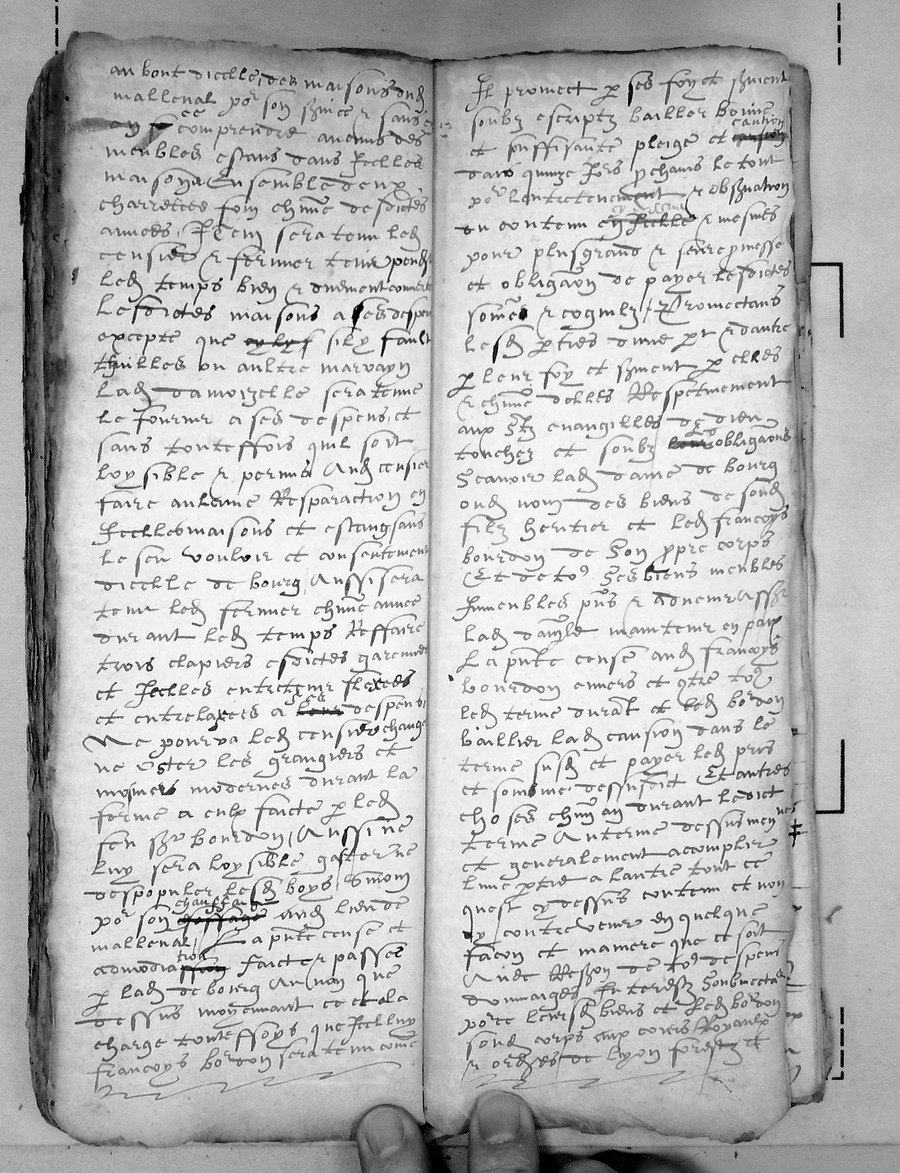 au bout dicelle, des maisons dud
mallenal por son service & sans
ce
en comprendre aucuns des
meubles estans dans Icelles
maisons Ensemble deux
charretees foin chune desdictes
annees, Item sera tenu led
censier & fermier tenir pendt
led temps bien & duement couvertes
Lesdictes maisons a ses despens
excepte que sil y fault
thuilles ou aultre marrayn
Lad damoizelle sera tenue
le fournir a ses despens et
sans touteffois quil soit
loysible & permis Aud censier
faire aulcune Resparaction en
Icelles maisons et estang sans
le sceu vouloir et consentement
dicelle de bourg, Aussi sera
tenu led fermier chune annee
durant led temps Reffaire
trois clapiers esdictes garennes
et Icelles entretenir flexees
ses
et entrelaxees a despens
Ne pourra led censier changer
ne oster les grangiers et
musniers modernes durant la
ferme a eulx faicte p led
feu sr bourdon, Aussi ne
luy sera loysible gaster ne
despopuler lesd boys, Sinon
chauffaige
por son aud lieu de
mallenal, La pnte cense et
tion
admodia faicte & passee
p lad de bourg Au nom que
dessus moyennant ce et a la
charge touteffoys que Icelluy
francoys bordon sera tenu come
Il promect p ses foy et serment
soubz escriptz bailler bonne
caution
et suffisante pleige et
dans quinze Jors prochains le tout
por lentretenement & observation
cy dessus
du contenu & mesmes
pour plus grand & seure promesse
et obligaon de payer lesdictes
somes & coguilz, Promectans
lesd pties dune pt & dautre
p leur foy et serment p elles
& chune delles Respetivement
aux stz evangilles de dieu
touchez et soubz obligaons
Scavoir lad dame de bourg
oud nom des biens de sond
filz heritier et led francoys
bourdon de son ppre corps
Et de tos ses biens meubles
Immeubles pns & advenir Assr
lad damlle maintenir en paix
La pnte cense aud francoys
bourdon envers et contre tos
led terme durat et led bordon
baillier lad caution dans le
terme susd et payer led pris
et somme dessusdict Et autres
choses chun an durant ledict
terme Au terme dessus mennes
et generalement accomplir
lune ptie a lautre tout ce
quest cy dessus contenu et non
y contrevenir en quelque
facon et maniere que ce soit
Avec Restion de tos despens
dommaiges Interestz Soubmectans
por ce leursd biens et led bordon
sond corps aux cours Royaulx
& ordres de lyon forestz et